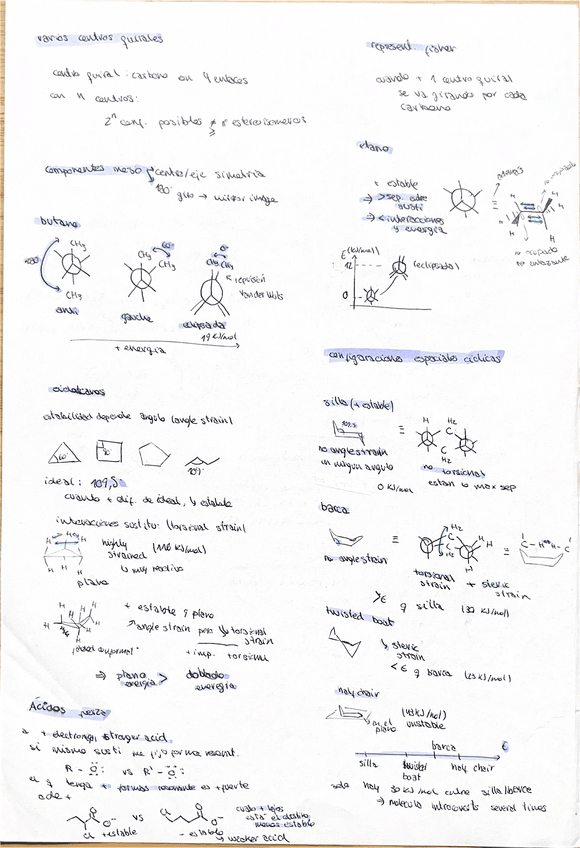 varios centros quirales
centro quiral: carbono con 4 enlaces
con n centros:
2^n conf. posibles ≠ nº estereoisomeros
≥
componentes meso centro/eje simetria
180° giro → mirror image
butano
180°
CH3
CH3
anti
60°
CH3
CH3
gauche
0°
CH3 CH3
repulsión
Van der Waals
eclipsada
19 kJ/mol
+ energia
cicloalcanos
estabilidad depende angulo (angle strain)
60°
90°
109°
ideal: 109,5
cuanto + dif. de ideal, ↓ estable
interacciones sustitu. (torsional strain)
H H H
H H H
highly
strained (110 kJ/mol)
↳ muy reactivo
plano
H H H H
+ estable q plano
↗ angle strain pero ↓ torsional
strain
+ imp. torsional
⇒ plano > doblado
energia energia
Ácidos
+ electroneg, stronger acid.
si mismo susti me fijo forma resont.
R - Ö: vs R' - Ö:
el q tenga + formas resonante es + fuerte
Cl O O-
+ estable
vs
Cl O O-
- estable
cuanto + lejos
esta el
menos estable
↳ weaker acid
represent. fisher
cuando + 1 centro quiral
se va girando por cada
carbono
etano
+ estable
⇒ > sep. entre
susti
⇒ < interacciones
y energia
≡
H H
H H
no ocupado
E (kJ/mol)
12
0
(eclipsada)
configuraciones especiales ciclicas
silla (+ estable)
109,5
no angle strain
en ningun angulo
0 kJ/mol
≡
H H2
C
C
H2
no torsional
estan lo max sep
barca
no angle strain
≡
H2
C
C
H2
H H
torsional
strain
+ steric
strain
≡
C - H H - C
> E q silla (30 kJ/mol)
twisted boat
↳ steric
strain
< E q barca (23 kJ/mol)
half chair
en el
plano
(43 kJ/mol)
unstable
E
silla
twister
boat
barca
half chair
solo hay 30 kJ/mol entre silla/barca
⇒ molecula interconverts several times